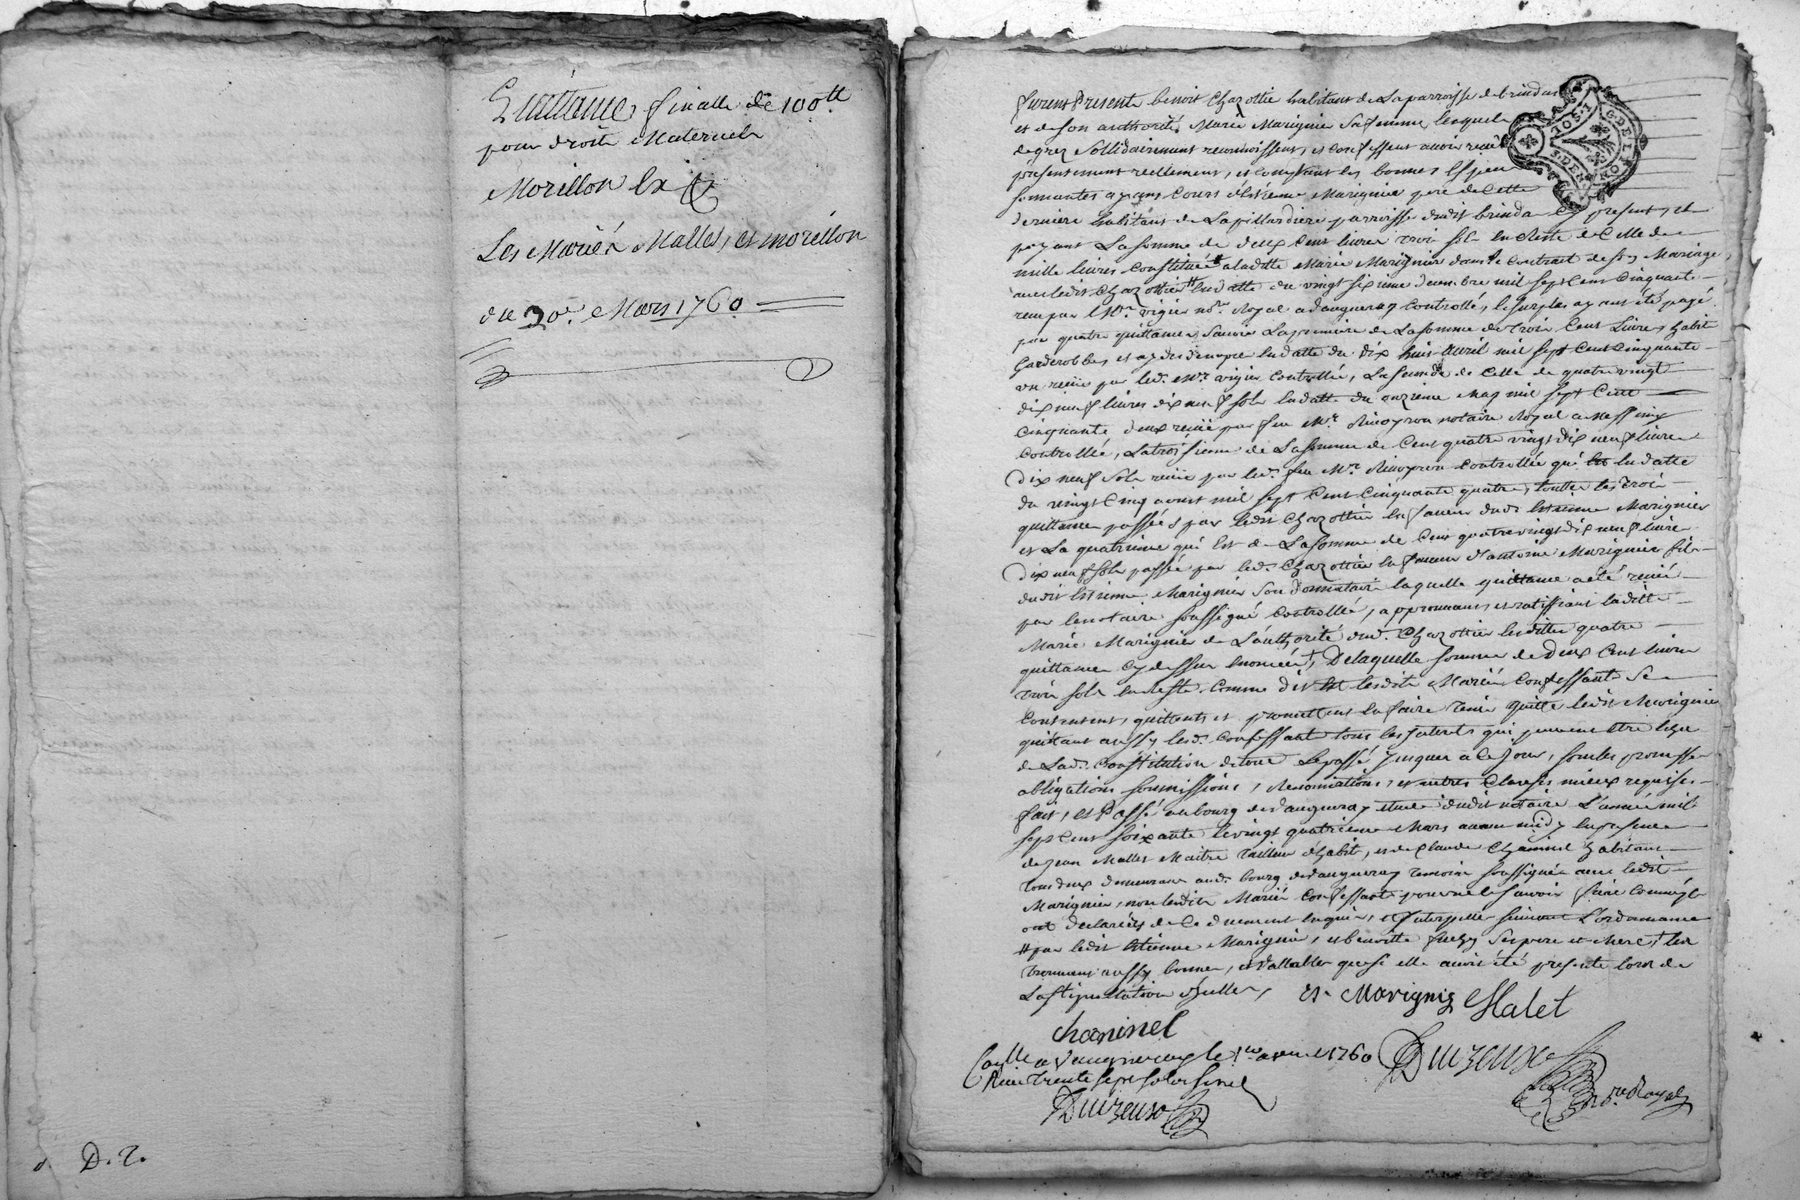 Quittance finalle de 100tt
pour droits Maternels
Morillon
Les Mariés Mallet, et morillon
du 20e. Mars 1760
D. T.
furent Presents benoit Chazottier habitant de La parroisse de brindas
et de son authorité Marie Marignier Sa femme, lesquels
de grez Sollidairement reconnoissent, et confessent avoir reçu
presentement reellement, et comptant en bonnes Especes
sonnantes ayans Cours d'Estienne Marignier pere de Cette
derniere habitant de La pillardiere parroisse dudit brinda Cy present, et
payant La somme de deux Cent livres trois sols En Reste de Celle de
mille livres Constituée a laditte Marie Marignier dans le Contract de son Mariage
avec ledit Chazottier En datte du vingt sixieme decembre mil sept Cent Cinquante
reçu par Me. vigier nore. Royal a vaugneray Controllé, le surplus ayant été payé
par quatre quittances Savoir La premiere de La somme de Trois Cent Livres habits
Garderobbes et en datte du dix huit avril mil sept Cent Cinquante
un reçue par led. Me. vigier Controllée, La seconde de Celle de quatre vingt
dix neuf livres dix neuf sols En datte du onzieme may mil sept Cent
Cinquante deux reçue par feu Me. notaire Royal a Messimy
Controllée, La troisieme de La somme de Cent quatre vingt dix neuf livres
Dix neuf sols reçue par led. feu Me. Controllée qui En datte
du vingt Cinq aoust mil sept Cent Cinquante quatre, touttes les trois
quittances passées par ledit Chazottier En faveur dudit Estienne Marignier
et La quatrieme qui Est de La somme de Cent quatre vingt dix neuf livres
Dix neuf sols passée par led. Chazottier En faveur d'antoine Marignier fils
dudit Estienne Marignier Son Donnataire laquelle quittance a été reçue
par le notaire soussigné Controllée, approuvant, et ratiffiant laditte
Marie Marignier de L'authorité dud. Chazottier lesdittes quatre
quittances Cy dessus Enoncées, De laquelle somme de Deux Cent livres
trois sols En Reste Comme dit Est lesdits Mariés Confessants Se
Contentent, quittent et promettent En faire tenir quitte ledit Marignier
quittant aussy lesd. Confessants tous les Interets qui peuvent etre dus
de Lad. Constitution de tout Le passé jusques a Ce jour, sous les promesses
obligations soumissions, Renonciations, et autres Clauses mieux requises.
fait, et Passé au bourg de vaugneray etude dudit notaire L'année mil
sept Cent soixante le vingt quatrieme Mars avant midy En presence
de Jean Mallet Maitre tailleur d'habit, et de Claude Chaninel habitants
tous deux demeurant aud. bourg de vaugneray temoins soussignés avec ledit
Marignier, non lesdits Mariés Confessants pour ne le savoir faire Comme
ont declarés de Ce duement Enquis, et Interpellés suivant L'ordonnance
# par ledit Estienne Marignier, et benoitte Ses pere et Mere, † Les
trouvant aussy bonnes, et vallables que si elle avoit été presente lors de
La stipulation d'Icelles,
Et. Marignie Malet
chaninel
Conllé a Vaugneray le 1er avril 1760
Reçu trente sept sols six d
Duizeux
Duizeux
nore. Royal
G. DE LYON
I. SOL.